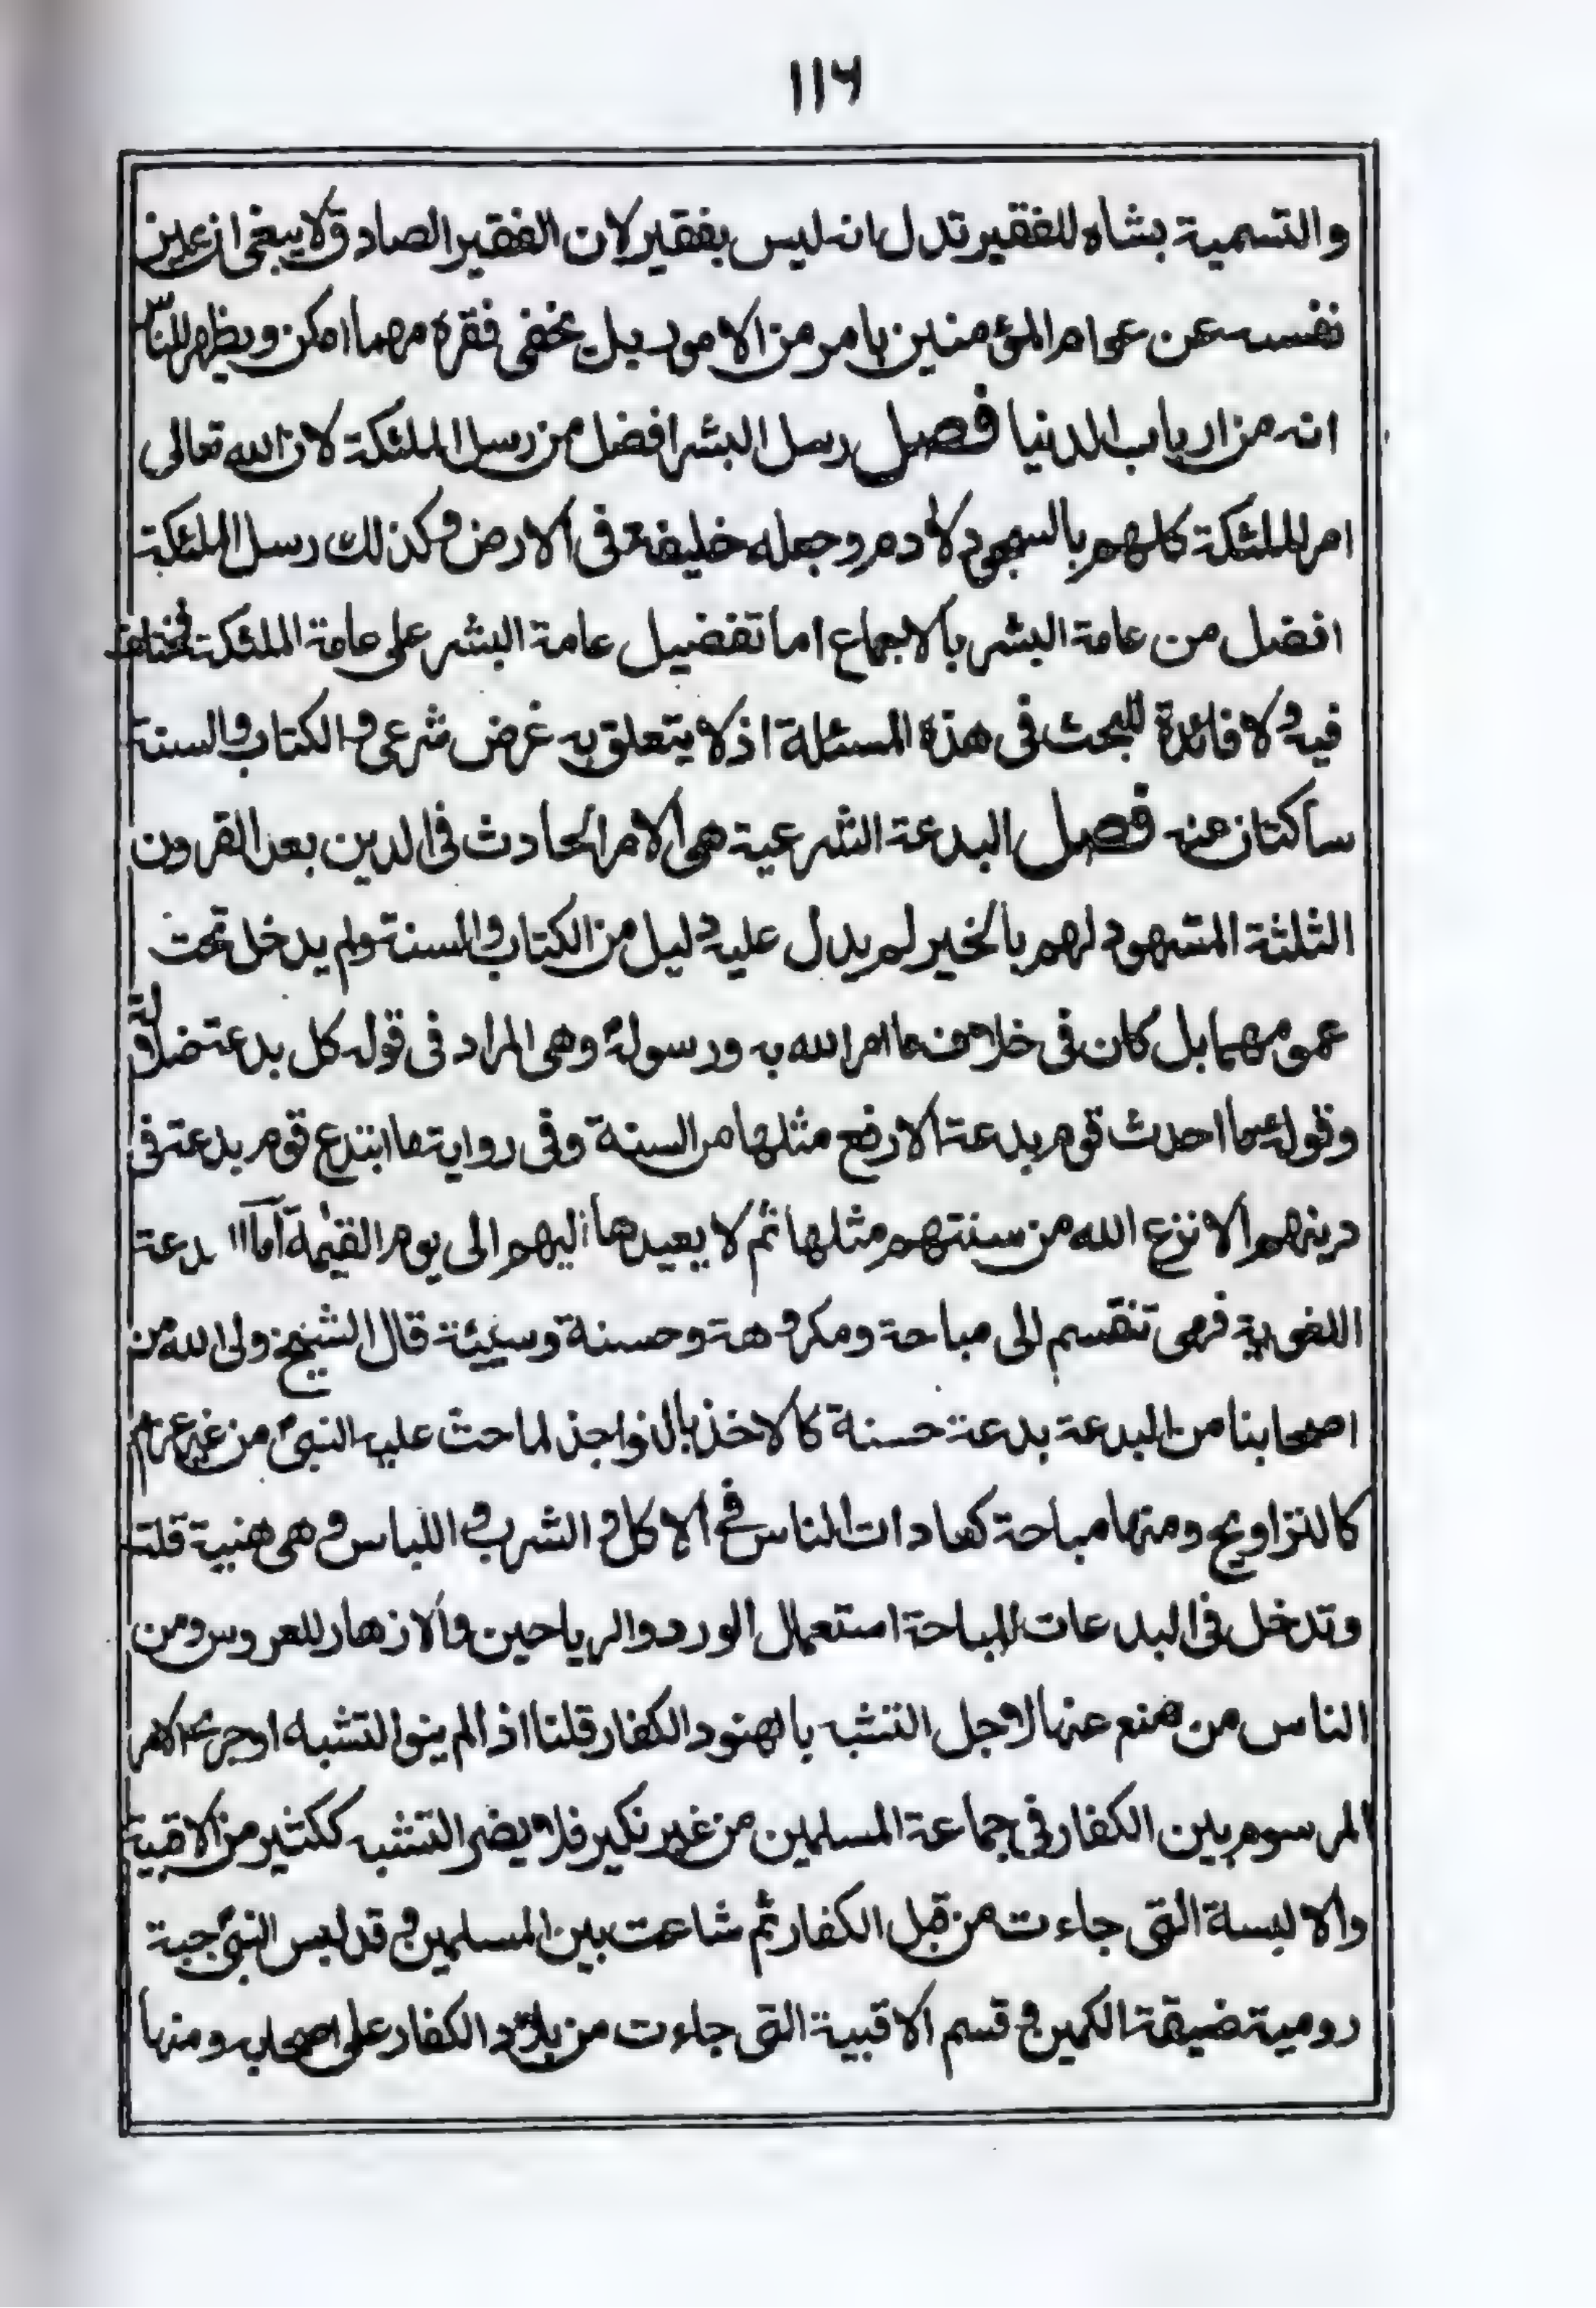 ١١٦
والتسمية بشاه للفقير تدل انه ليس بفقير لان الفقير الصادق لا يبغى ان يميز
نفسه عن عوام المؤمنين بامر من الامور بل يخفى فقره مهما امكن ويظهر للناس
انه من ارباب الدنيا فصل رسل البشر افضل من رسل الملئكة لان الله تعالى
امر الملئكة كلهم بالسجود لادم وجعله خليفة فى الارض وكذلك رسل الملئكة
افضل من عامة البشر بالاجماع اما تفضيل عامة البشر على عامة الملئكة فمختلف
فيه ولا فائدة للبحث فى هذه المسئلة اذ لا يتعلق به غرض شرعى والكتاب والسنة
ساكتان عنه فصل البدعة الشرعية هى الامر الحادث فى الدين بعد القرون
الثلثة المشهود لهم بالخير لم يدل عليه دليل من الكتاب والسنة ولم يدخل تحت
عمومهما بل كان فى خلاف ما امر الله به ورسوله وهى المراد فى قوله كل بدعة ضلالة
وقوله ما احدث قوم بدعة الا رفع مثلها من السنة وفى رواية ما ابتدع قوم بدعة فى
دينهم الا نزع الله من سنتهم مثلها ثم لا يعيدها اليهم الى يوم القيمة اما البدعة
اللغوية فهى تنقسم الى مباحة ومكروهة وحسنة وسيئة قال الشيخ ولى الله من
اصحابنا من البدعة بدعة حسنة كالاخذ بالنواجذ لما حث عليه النبى من غير عزم
كالتراويح ومنها مباحة كعادات الناس فى الاكل والشرب واللباس وهى هنية قلت
وتدخل فى البدعات المباحة استعمال الورد والرياحين والازهار للعروس ومن
الناس من منع عنها لاجل التشبه بالهنود الكفار قلنا اذا لم ينو التشبه او جرى الامر
المرسوم بين الكفار فى جماعة المسلمين من غير نكير فلا يضر التشبه ككثير من الاقبية
والالبسة التى جاءت من قبل الكفار ثم شاعت بين المسلمين وقد لبس النبى جبة
رومية ضيقة الكمين وقسم الاقبية التى جاءت من بلاد الكفار على اصحابه ومنها